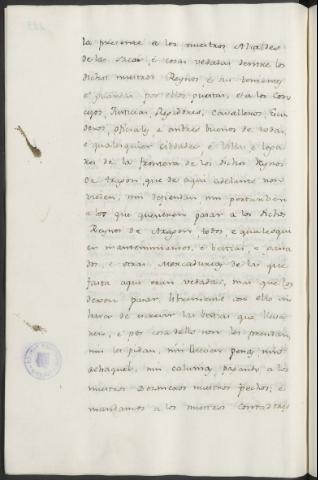 la presente a los nuestros Alcaldes
de las sacas, é cosas vedadas de entre los
dichos nuestros Reynos, é su
é por ellos puestas, é a los Con
cejos, Justicias, Regidores, Cavalleros, Escu
deros, oficiales e omes buenos de todas,
e qualesquier cibdades e villas e logas
res de la frontera de los dichos Reynos
de Aragon, que de aqui adelante non
vieden, nin defiendan nin
a los que quisieren pasar a los dichos
Reynos de Aragon todos, e qualesqui
er mantenimientos, e bestias, e gana
dos, e otras Mercadurias de las que
fasta aqui eran vedadas, mas que los
dexen pasar libremente con ello sin
haver de escrivir las bestias que lleva
ren, e por cosa dello non los prendan,
nin les pidan, nin lleven pena, nin
achaque, nin calunia, pagando a los
nuestros Dezmeros nuestros derechos; é
mandamos a los nuestros Contadores